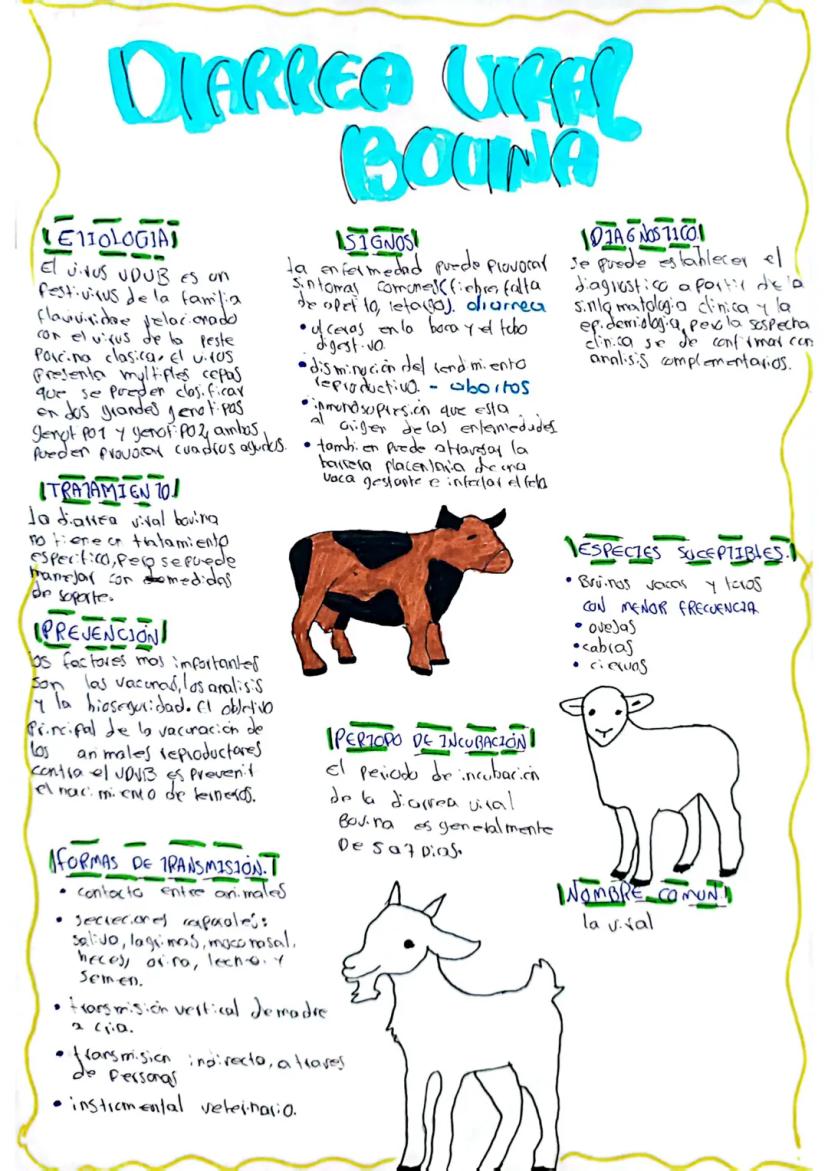 DIARREA VIRAL
BOVINA
ETIOLOGIA
El virus VDVB es un
Pestivirus de la familia
flaviviridae relacionado
con el virus de la peste
Porcina clasica. el virus
presenta multiples cepas
que se pueden clasificar
en dos grandes genotipos
genotipo1 y genotipo2, ambos
pueden provocar cuadros agudos.
TRATAMIENTO
la diarrea viral bovina
no tiene un tratamiento
especifico, pero se puede
manejar con medidas
de soporte.
PREVENCIÓN
los factores mas importantes
son las vacunas, los analisis
y la bioseguridad. el objetivo
Principal de la vacunación de
los animales reproductores
contra el VDVB es prevenir
el nacimiento de terneros.
FORMAS DE TRANSMISIÓN.
• contacto entre animales
• secreciones corporales:
saliva, lagrimas, moco nasal,
heces, orina, leche. y
semen.
• transmisión vertical de madre
a cria.
• transmision indirecta, a traves
de personas
• instrumental veterinario.
SIGNOS
la enfermedad puede provocar
sintomas comunes (fiebre, falta
de apetito, letargo). diarrea
• ulceras en la boca y el tubo
digestivo.
• disminución del rendimiento
reproductivo. - abortos
• inmunosupresión que esta
al origen de las enfermedades
• tambien puede atravesar la
barrera placentaria de una
vaca gestante e infectar el feto
PERIODO DE INCUBACIÓN
el periodo de incubación
de la diarrea viral
Bovina es generalmente
De 5 a 7 Dias.
DIAGNOSTICO
se puede establecer el
diagnostico a partir de la
sintomatologia clinica y la
epidemiologia, pero la sospecha
clinica se de confirmar con
analisis complementarios.
ESPECIES SUCEPTIBLES.
• Bovinos vacas y toros
CON MENOR FRECUENCIA
• ovejas
• cabras
• ciervos
NOMBRE COMUN
la viral